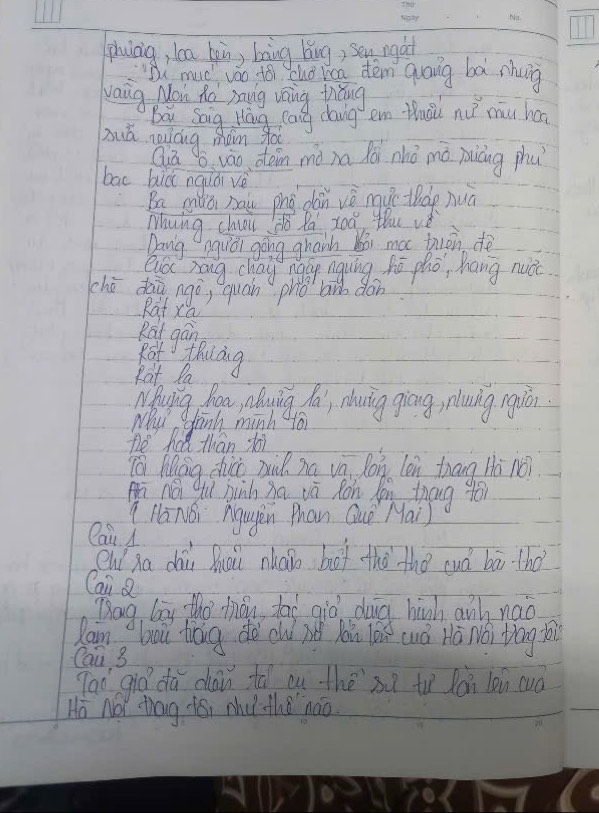 Thứ
Ngày . . No.
phượng, loa kèn, bằng lăng, sen ngát
Đi mục vào tôi chợ hoa đêm quang bá nhưng
vầng Nón lá sáng vầng trăng
Bờ Sông Hồng cong dáng em thiếu nữ màu hoa
sưa vương mềm tóc
Của ô vào đêm mở ra lối nhỏ mờ sương phủ
bạc bước người về
Ba mươi sáu phố dồn về ngực tháp rùa
Những chiều đổ lá xoã thu về
Dáng người gồng ghánh mọc triền đê
Cuộc sống chảy ngập ngừng hè phố, hàng nước
chè đầu ngõ, quán phở bình dân
Rất xa
Rất gần
Rất thương
Rất lạ
Những hoa, những lá, những giọng, những người.
Như giành mình tôi
Để hát thân tôi
Tôi không được sinh ra và lớn lên trong Hà Nội
Hà Nội tự sinh ra và lớn lên trong tôi
( Hà Nội Nguyễn Phan Quế Mai )
Câu 1
Chỉ ra dấu hiệu nhận biết thể thơ của bài thơ
Câu 2
Trong bài thơ trên, tác giả dùng hình ảnh nào
làm biểu tượng để chỉ sự lớn lên của Hà Nội trong tôi
Câu 3
Tác giả đã diễn tả cụ thể sự tự lớn lên của
Hà Nội trong tôi như thế nào.
10
15
20